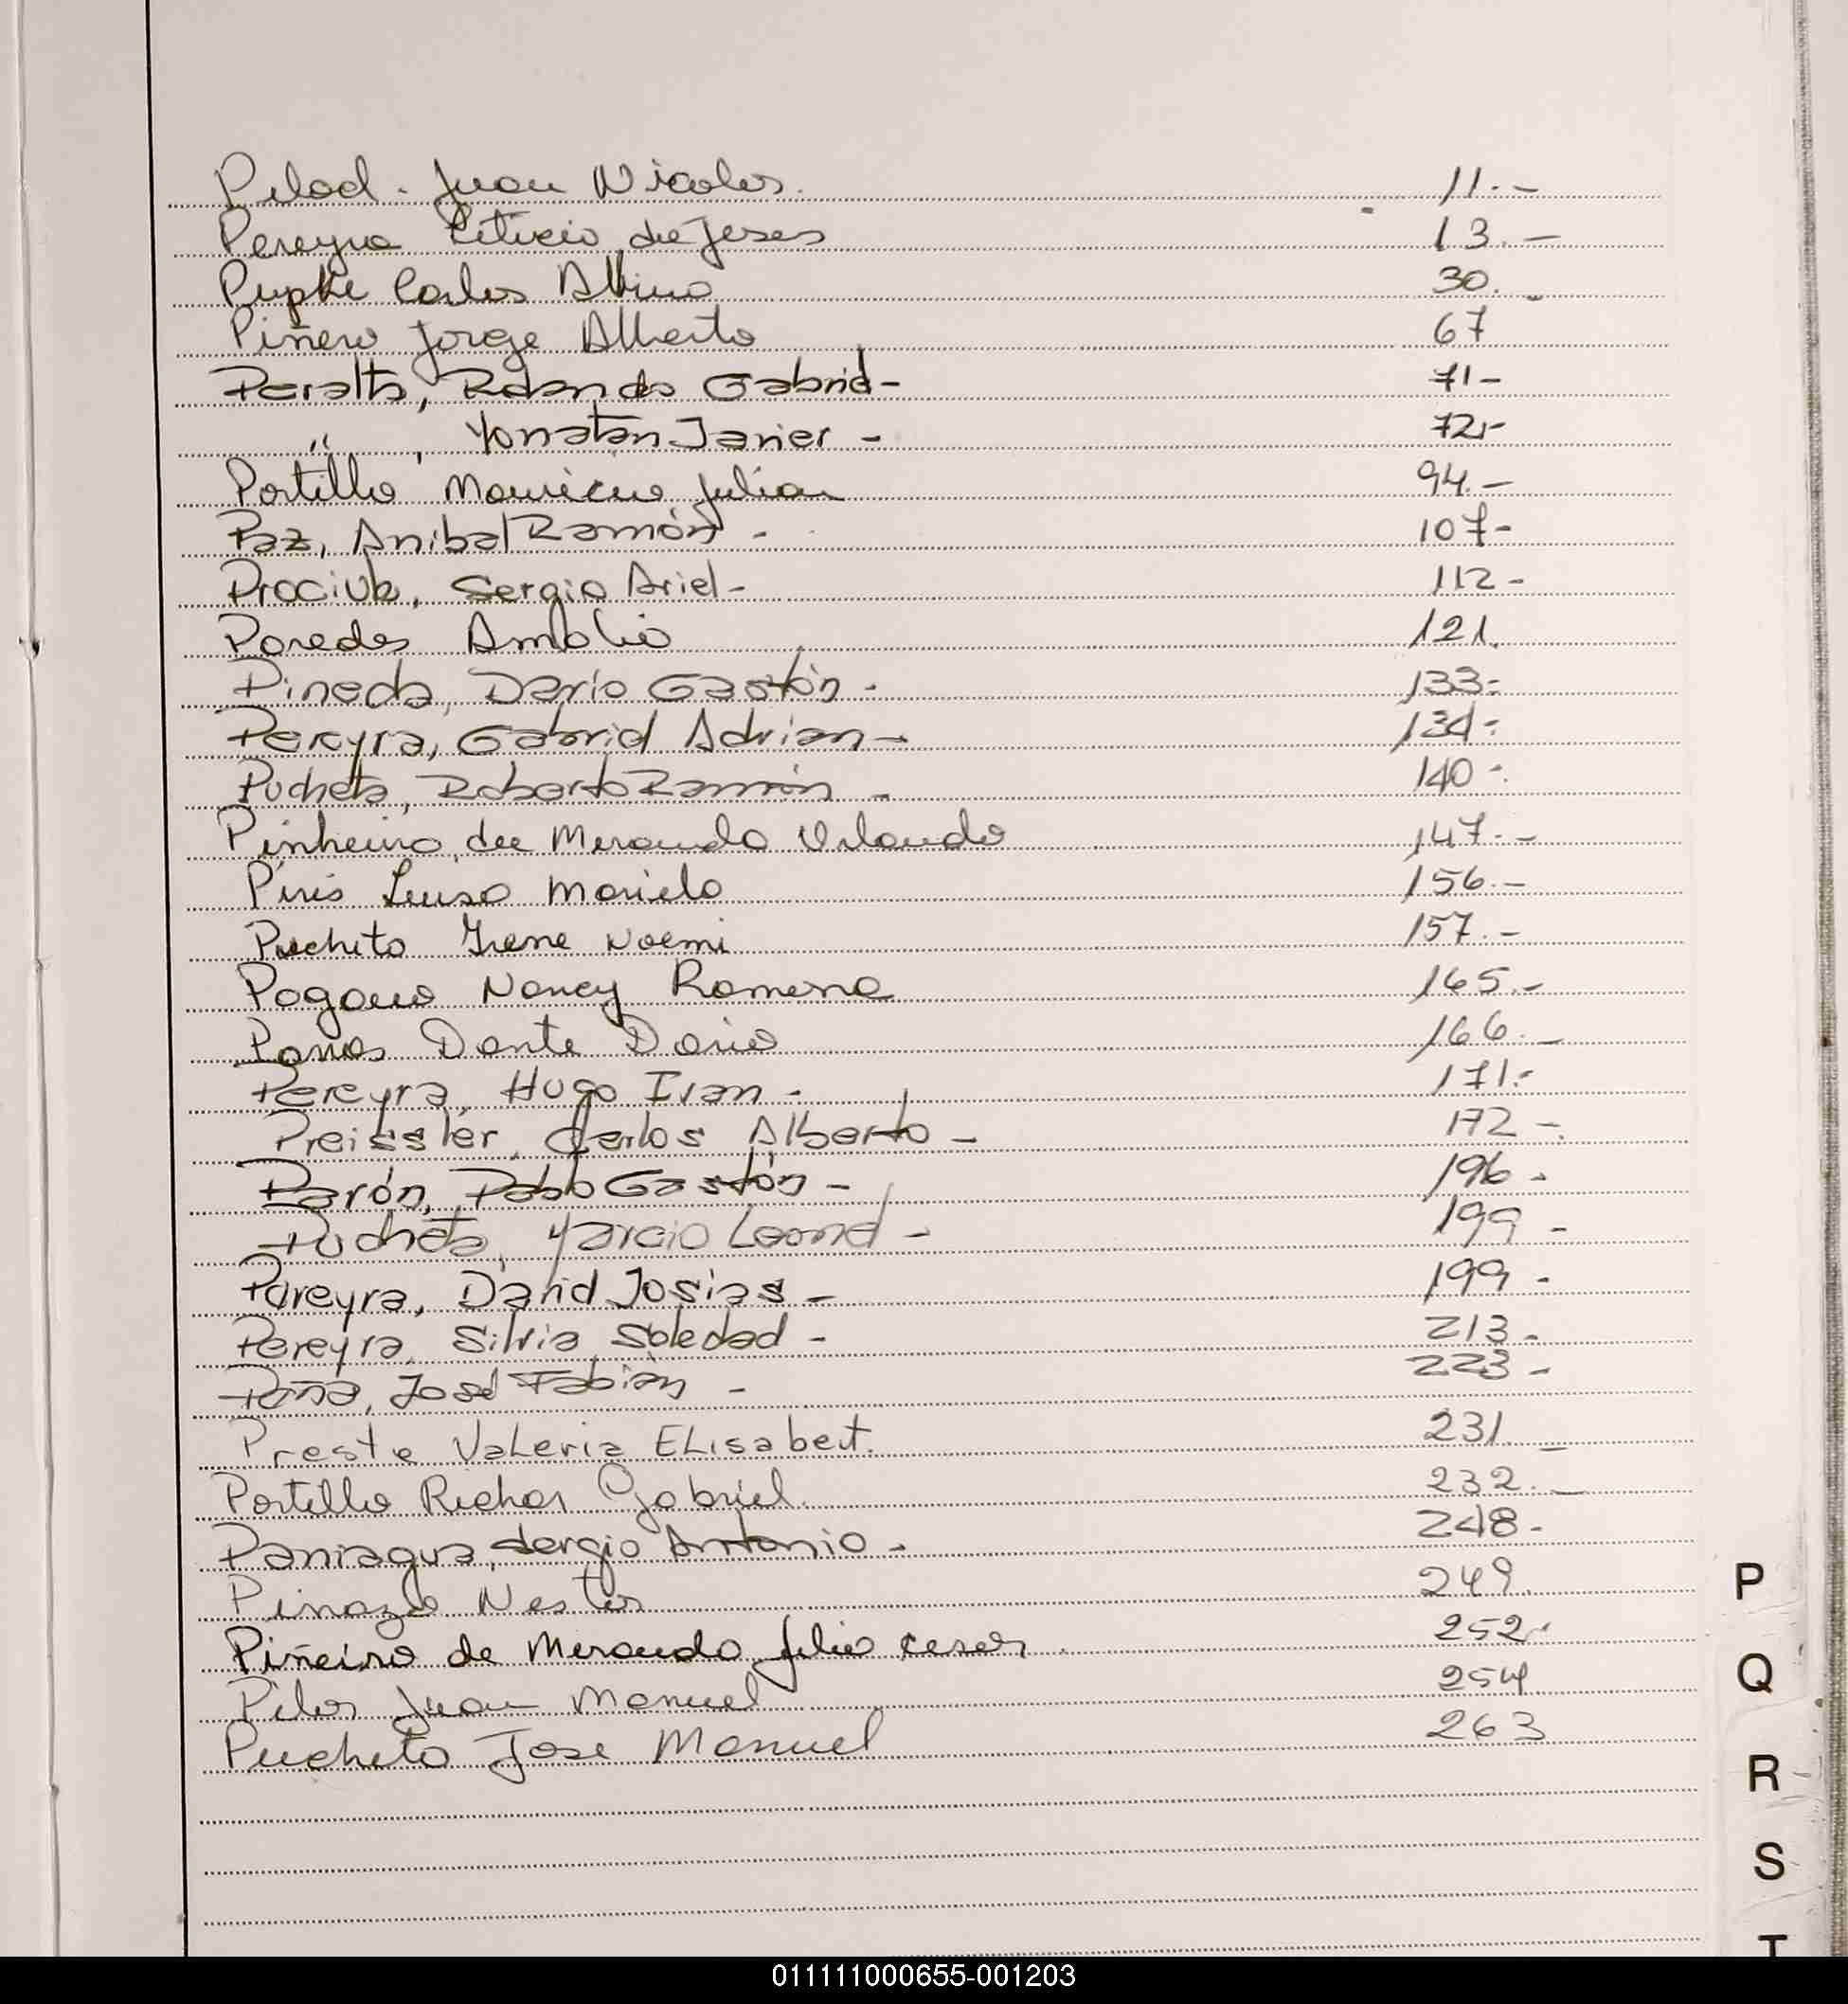 Pelod. Juan Nicolas. 11.-
Pereyra Leticia de Jeses 13.-
Pupke Carlos Albino 30.-
Piñero Jorge Alberto 67
Peralta, Rolando Gabriel- 71-
" , Yonatan Javier - 72.-
Portillo Mauricio Julian 94.-
Paz, Anibal Ramón - 107-
Prociuk, Sergio Ariel- 112-
Paredes Amalia 121.
Pineda, Dario Gastón - 133-
Pereyra, Gabriel Adrian - 134-
Pucheta, Roberto Ramón - 140-
Pinheiro de Meranda Orlando 147.-
Piris Luisa Mariela 156.-
Pucheta Irene Noemi 157.-
Pogano Nancy Romena 165.-
Dante Dario 166.-
Pereyra, Hugo Ivan - 171.-
Preissler, Carlos Alberto - 172-
Parón, Pablo Gastón - 196-
Pucheta, Marcio Leonel - 199-
Pereyra, David Josias - 199-
Pereyra, Silvia Soledad - 213-
Peña, José Fabián - 223-
Preste Valeria ELisabert. 231.-
Portillo Richar Gabriel. 232.-
Paniagua, Sergio Antonio - 248-
Pinazo Nestor 249.
Piñeiro de Meranda Julio cesar. 252.-
Juan Manuel 254
Pucheta Jose Manuel 263
P
Q
R
S
T
011111000655-001203